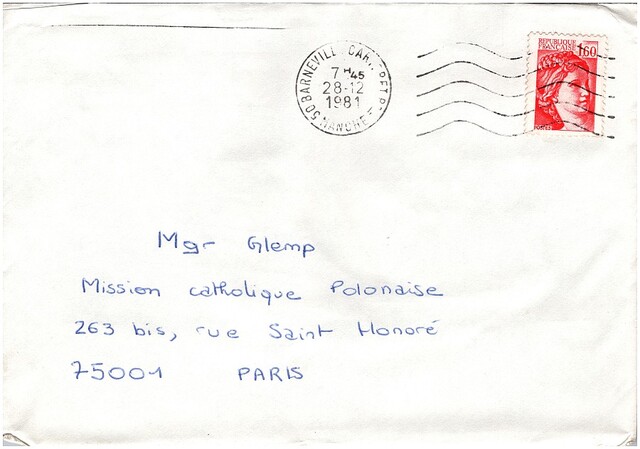 50 BARNEVILLE CARTERET
7H45
28-12
1981
MANCHE
REPUBLIQUE
FRANÇAISE
1.60
Mgr Glemp
Mission catholique Polonaise
263 bis, rue Saint Honoré
75001 PARIS